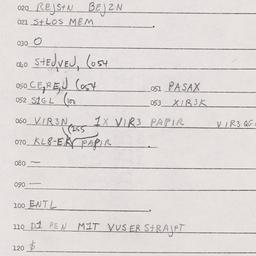 020 REJStN BEJZN
021 StLOS MEM
030 O
040 StEJVEJ, (054
050 CE,RE,J (054 051 PASAX
052 SIGL (101 053 XIR3K
060 VIR3N, 1X VIR3 PAPIR
(255
070 KL8-ER PAPIR
080 —
090 —
100 ENTL
110 D1 PEN MIT VUSERStRAJFT
120 $